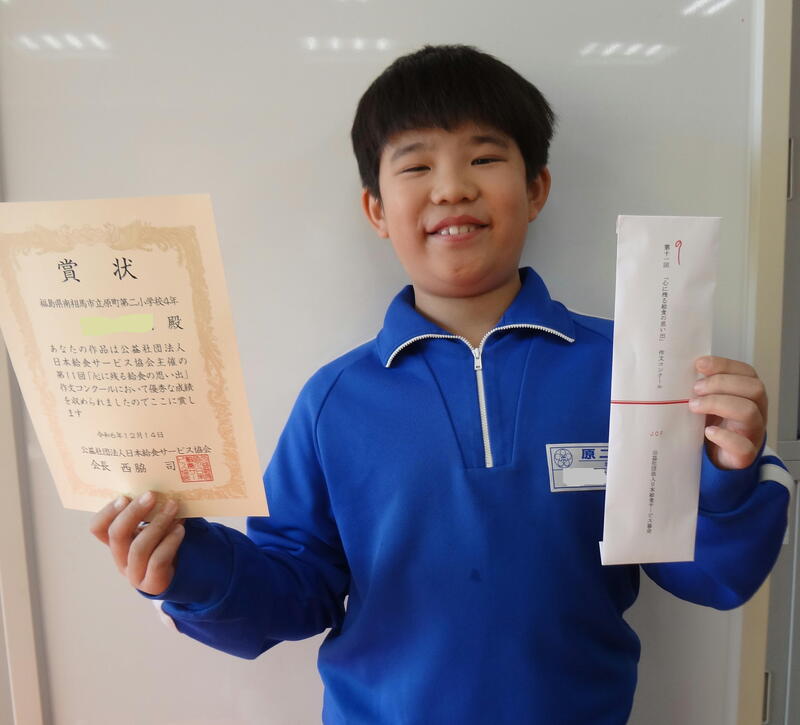 賞状
福島県南相馬市立原町第二小学校4年
殿
あなたの作品は公益社団法人
日本給食サービス協会主催の
第11回「心に残る給食の思い出」
作文コンクールにおいて優秀な成績
を収められましたのでここに賞し
ます
令和6年12月14日
公益社団法人日本給食サービス協会
会長 西脇 司
原二
第十一回 「心に残る給食の思い出」 作文コンクール
公益社団法人日本給食サービス協会